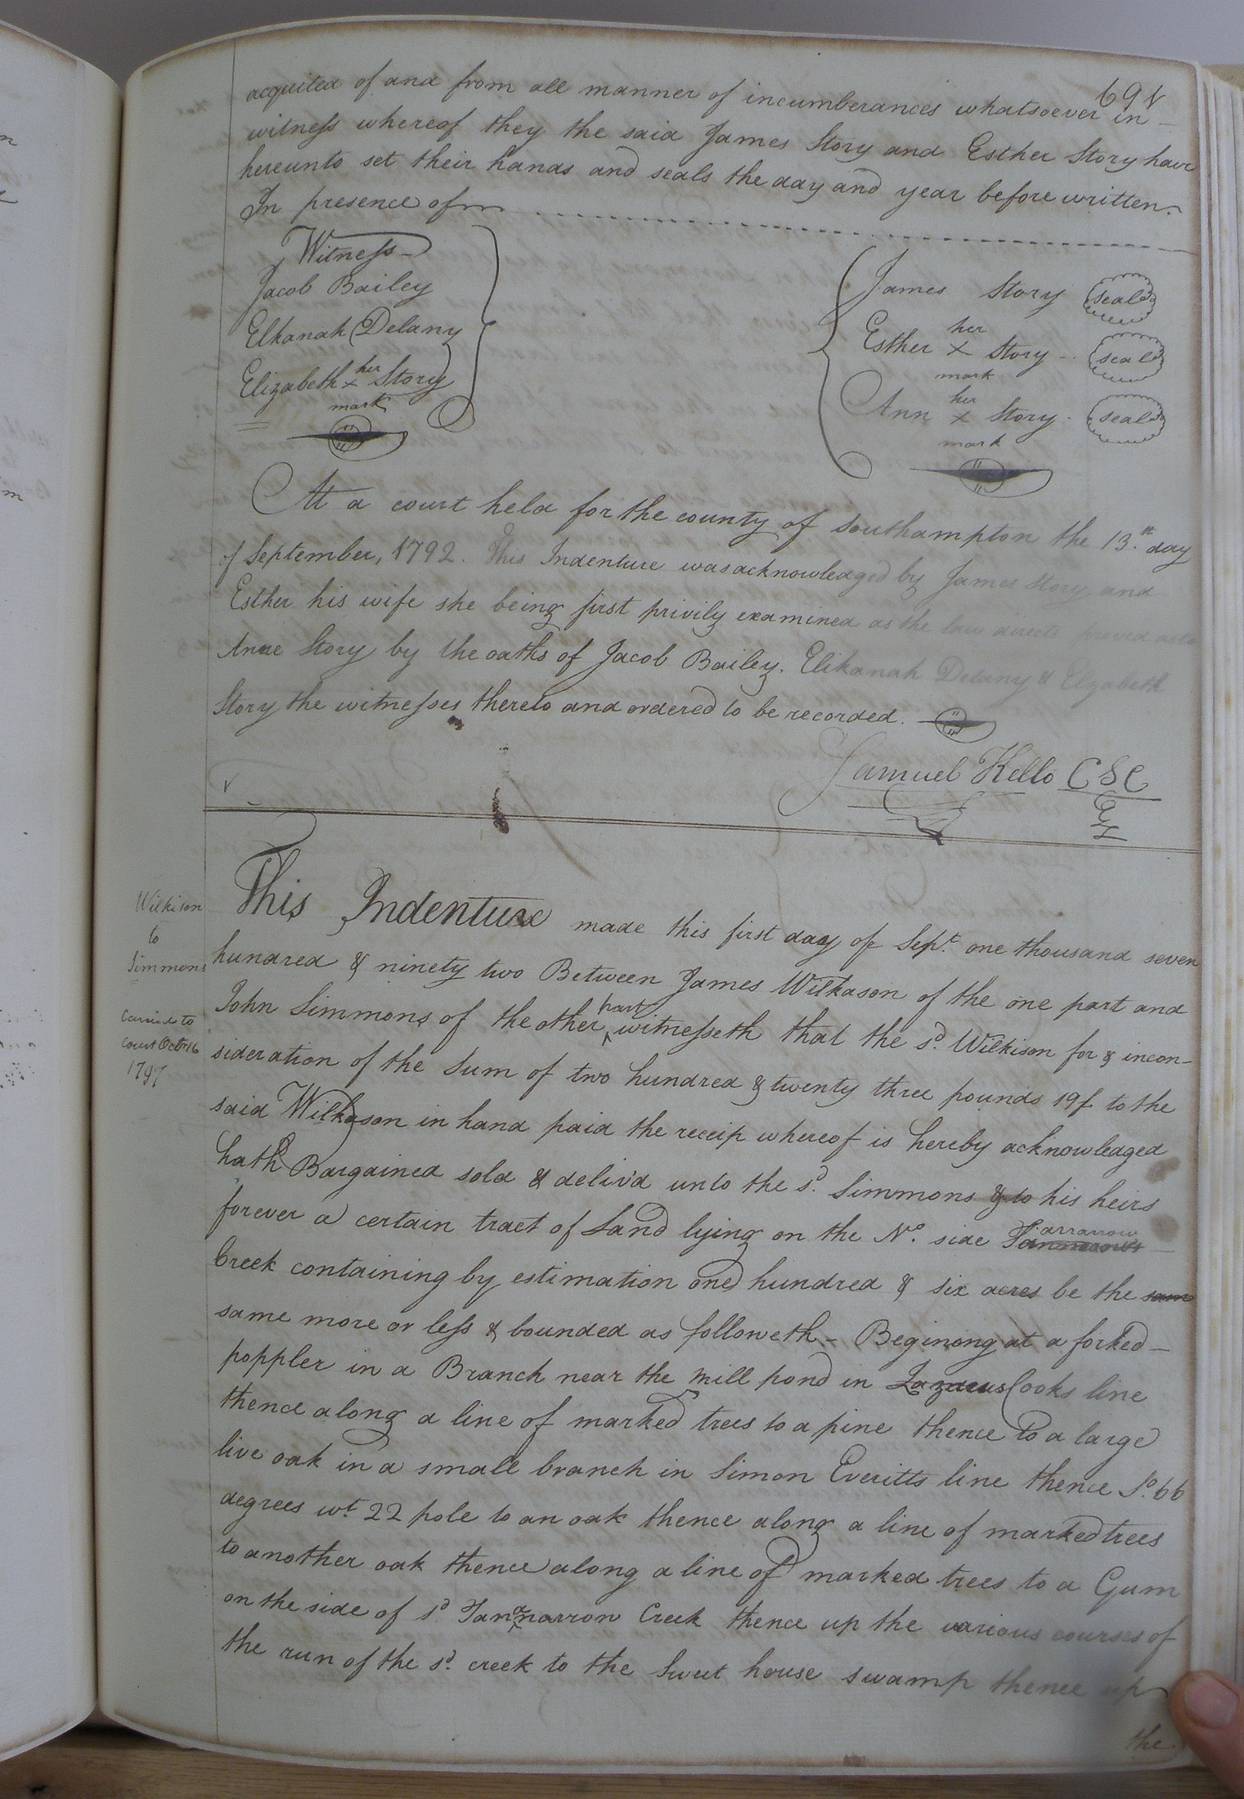 691
acquited of and from all manner of incumberances whatsoever in
witness whereof they the said James Story and Esther Story have
hereunto set their hands and seals the day and year before written.
In presence of
Witness
Jacob Bailey
Elkanah Delany
Elizabeth her x mark Story
James Story seal
Esther her x mark Story seal
Ann her x mark Story seal
At a court held for the county of Southampton the 13.th day
of September, 1792. This Indenture was acknowledged by James Story and
Esther his wife she being first privily examined as the law directs proved as to
Anne Story by the oaths of Jacob Bailey. Elikanah Delany & Elizabeth
Story the witnesses thereto and ordered to be recorded.
Samuel Kello CSC
Wilkison
to
Simmons
Carried to
court Octr 16
1797
This Indenture made this first day of Sept. one thousand seven
hundred & ninety two Between James Wilkason of the one part and
John Simmons of the other part witnesseth that the sd. Wilkison for & in con-
sideration of the sum of two hundred & twenty three pounds 19s to the
said Wilkason in hand paid the receip whereof is hereby acknowledged
hath Bargained sold & deliv'd unto the sd. Simmons & to his heirs
forever a certain tract of Land lying on the No. side Tarrarrow
Creek containing by estimation one hundred & six acres be the same
same more or less & bounded as followeth - Begining at a forked -
poppler in a Branch near the mill pond in Lazarus Cooks line
thence along a line of marked trees to a pine thence to a large
live oak in a small branch in Simon Everitts line thence So. 66
degrees wt 22 pole to an oak thence along a line of marked trees
to another oak thence along a line of marked trees to a Gum
on the side of sd Creek thence up the various courses of
the run of the sd. creek to the Sweet house swamp thence up
the